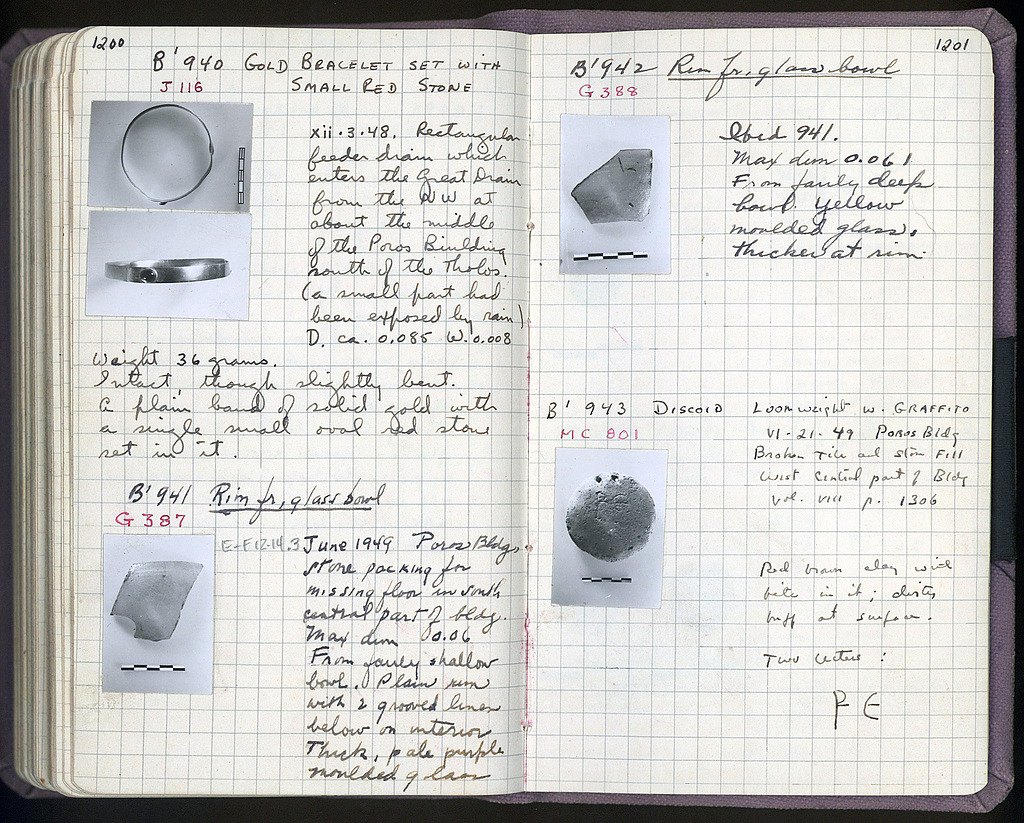 1200
B' 940 GOLD BRACELET SET WITH
J 116 SMALL RED STONE
xii.3.48. Rectangular
feeder drain which
enters the Great Drain
from the NW at
about the middle
of the Poros Biulding
south of the Tholos.
(a small part had
been exposed by rain)
D. ca. 0.085 W. 0.008
Weight 36 grams.
Intact, though slightly bent.
A plain band of solid gold with
a single small oval red stone
set in it.
B' 941 Rim fr, glass bowl
G 387
E-F 12-14.3 June 1949 Poros Bldg,
stone packing for
missing floor in south
central part of bldg.
Max dim 0.06
From fairly shallow
bowl. Plain rim
with 2 grooved lines
below on interior
Thick, pale purple
moulded glass
1201
B' 942 Rim fr, glass bowl
G 388
Ibid 941.
Max dim 0.061
From fairly deep
bowl. Yellow
moulded glass,
thicker at rim.
B' 943 DISCOID LOOMWEIGHT W. GRAFFITO
MC 801
VI-21-49 POROS Bldg
Broken tile and stone Fill
West Central part of Bldg
Vol. VIII p. 1306
Red brown clay with
bits in it; dirty
buff at surface.
Two letters :
P E